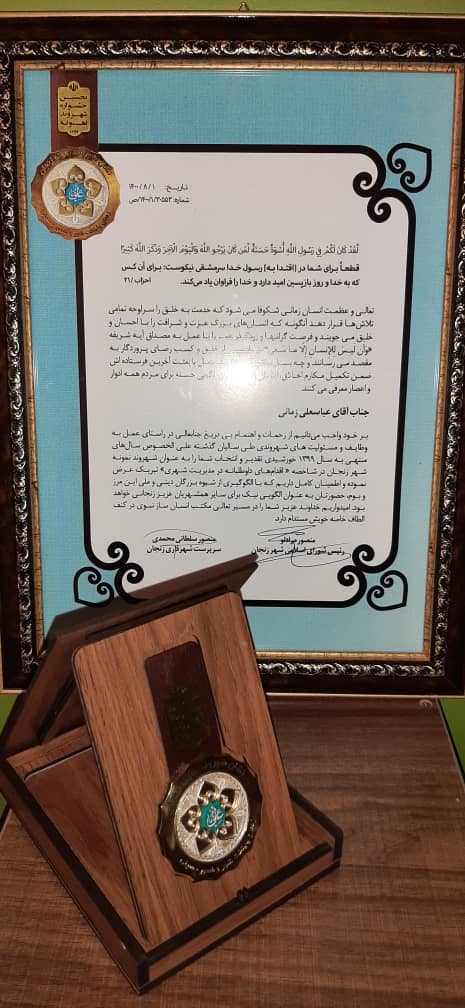 نخستین
جشنواره
شهروند
نمونه
تاریخ: ۱۴۰۰/۸/۱
شماره: ۱۴۰۰/۱/۳۰۵۵۲/ص
لَقَدْ كَانَ لَكُمْ فِي رَسُولِ اللَّهِ أُسْوَةٌ حَسَنَةٌ لِّمَن كَانَ يَرْجُو اللَّهَ وَالْيَوْمَ الْآخِرَ وَذَكَرَ اللَّهَ كَثِيرًا
قطعاً برای شما در (اقتدا به) رسول خدا سرمشقی نیکوست؛ برای آن کس
که به خدا و روز بازپسین امید دارد و خدا را فراوان یاد می‌کند. احزاب / ۲۱
تعالی و عظمت انسان زمانی شکوفا می شود که خدمت به خلق را سرلوحه تمامی
تلاش‌ها قرار دهد آنگونه که انسان‌های بزرگ عزت و شرافت را با احسان و
خلق می جویند و فرصت گرانبها و با عمل به مصداق آیه شریفه
«وأن لیس للإنسان إلا ما سعی» خلق و کسب رضای پروردگار به
مقصد می رسانند و چه با بعثت آخرین فرستاده اش
ضمن تکمیل مکارم اخلاق حسنه برای مردم همه ادوار
و اعصار معرفی می کنند.
جناب آقای عباسعلی زمانی
بر خود واجب می‌دانیم از زحمات و اهتمام بی دریغ جنابعالی در راستای عمل به
وظایف و مسئولیت های شهروندی طی سالیان گذشته علی الخصوص سال‌های
منتهی به سال ۱۳۹۹ خورشیدی تقدیر و انتخاب شما را به عنوان شهروند نمونه
شهر زنجان در شاخصه « اقدام‌های داوطلبانه در مدیریت شهری» تبریک عرض
نموده و اطمینان کامل داریم که با الگوگیری از شیوه بزرگان دینی و ملی این مرز
و بوم، حضورتان به عنوان الگویی نیک برای سایر همشهریان عزیز زنجانی خواهد
بود. امیدواریم خداوند عزیز شما را در مسیر تعالی مکتب انسان ساز نبوی در کنف
الطاف خاصه خویش مستدام دارد
منصور سلطانی محمدی
رئیس شورای اسلامی شهر زنجان سرپرست شهرداری زنجان